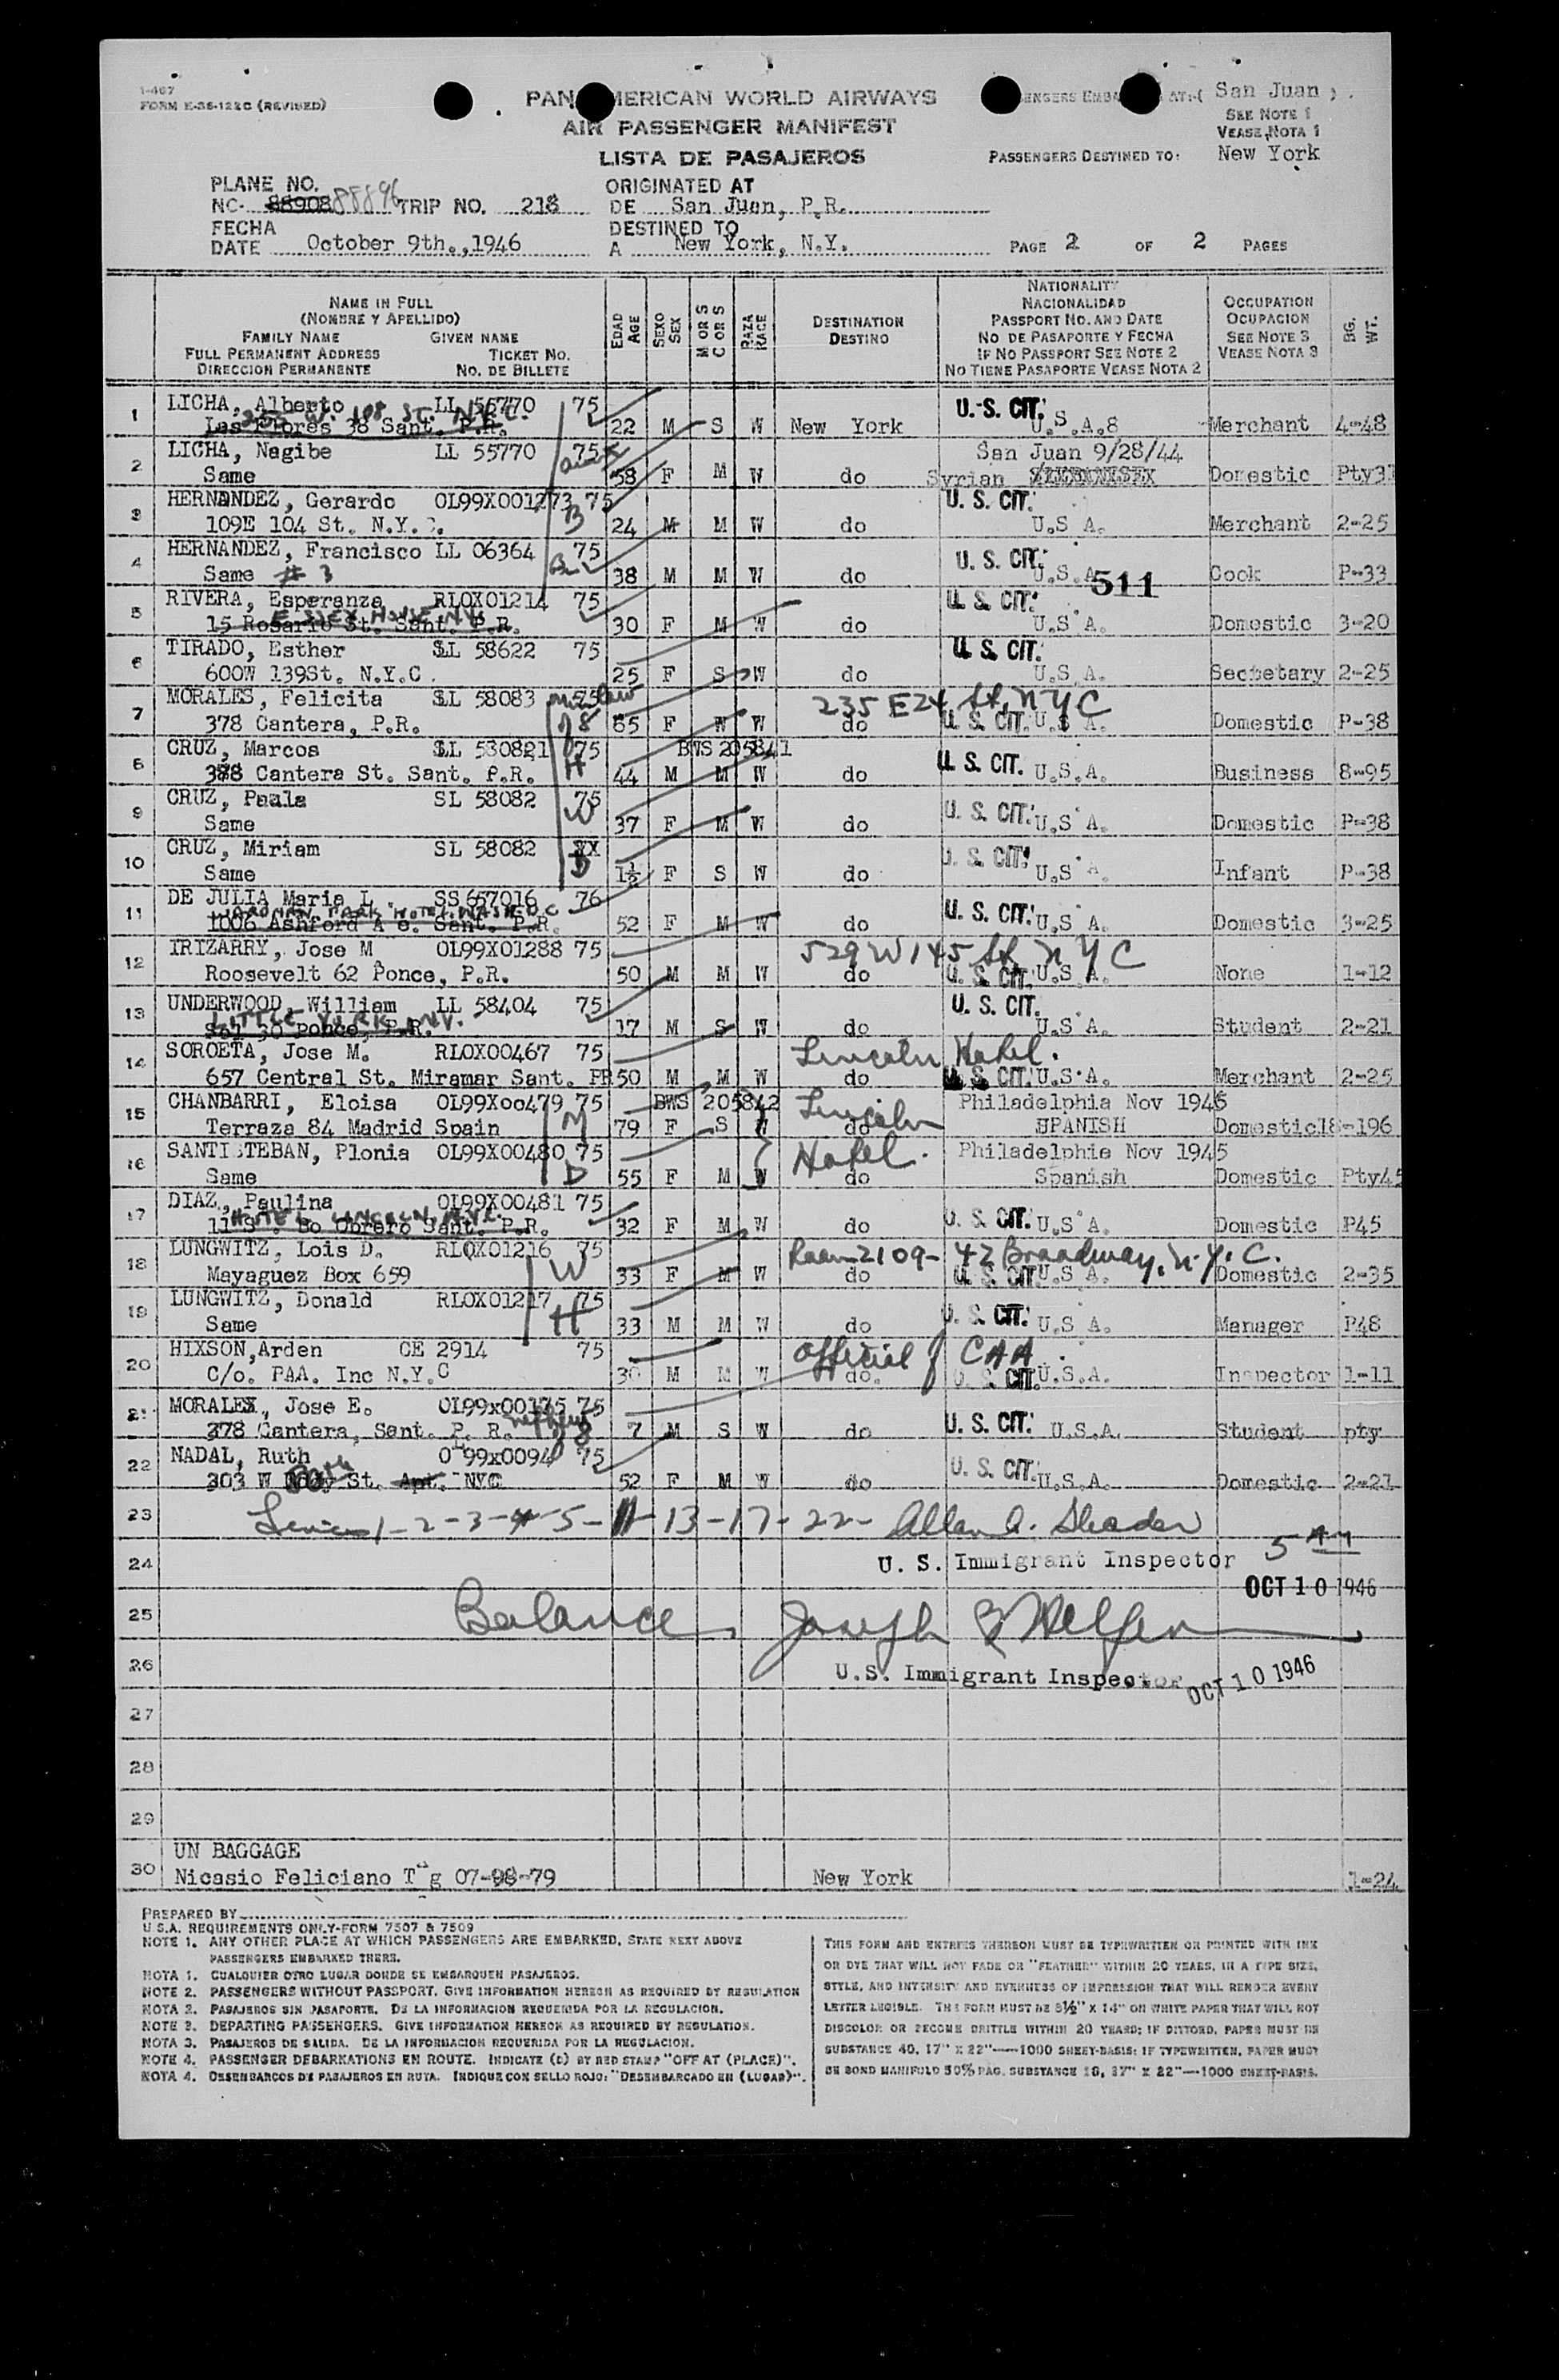 1-467
FORM E-36-122C (REVISED)
PAN AMERICAN WORLD AIRWAYS
AIR PASSENGER MANIFEST
LISTA DE PASAJEROS
San Juan
SEE NOTE 1
VEASE NOTA 1
PASSENGERS DESTINED TO: New York
PLANE NO.
NC- 88908 88896 TRIP NO. 218
ORIGINATED AT
DE San Juan, P.R.
FECHA
DATE October 9th.,1946
DESTINED TO
A New York, N.Y.
PAGE 2 OF 2 PAGES
NAME IN FULL
(NOMBRE Y APELLIDO)
FAMILY NAME GIVEN NAME
FULL PERMANENT ADDRESS TICKET NO.
DIRECCION PERMANENTE NO. DE BILLETE
EDAD AGE
SEXO SEX
M OR S C OR S
RAZA RACE
DESTINATION
DESTINO
NATIONALITY
NACIONALIDAD
PASSPORT NO. AND DATE
NO DE PASAPORTE Y FECHA
IF NO PASSPORT SEE NOTE 2
NO TIENE PASAPORTE VEASE NOTA 2
OCCUPATION
OCUPACION
SEE NOTE 3
VEASE NOTA 3
BG. WT.
1 LICHA, Alberto LL 55770 75 U.S. CIT.
Las Flores 38 Sant. P.R. 22 M S W New York U.S.A.8 Merchant 4-48
2 LICHA, Nagibe LL 55770 75 San Juan 9/28/44
Same 58 F M W do Syrian Domestic Pty31
3 HERNANDEZ, Gerardo OL99X001273 75 U.S. CIT.
B
109E 104 St. N.Y.C. 24 M M W do U.S A. Merchant 2-25
4 HERNANDEZ, Francisco LL 06364 75 U.S. CIT.
Same # 3 38 M M W do U.S.A 511 Cook P-33
5 RIVERA, Esperanza RLOX01214 75 U.S. CIT.
ESSEX HOUSE N.Y.
15 Rosario St. Sant. P.R. 30 F M W do U.S A. Domestic 3-20
6 TIRADO, Esther SL 58622 75 U.S. CIT.
600W 139St. N.Y.C. 25 F S W do U.S.A. Secretary 2-25
7 MORALES, Felicita SL 58083 75 235 E 24 St, N Y C
378 Cantera, P.R. 65 F W W do U.S. CIT. U.S A. Domestic P-38
8 CRUZ, Marcos SL 530821 75 BWS 205841
H
378 Cantera St. Sant. P.R. 44 M M W do U.S. CIT. U.S.A. Business 8-95
9 CRUZ, Paula SL 58082 75
W
Same 37 F M W do U.S. CIT. U.S A. Domestic P-38
10 CRUZ, Miriam SL 58082 XX
D
Same 1½ F S W do U.S. CIT. U.S A. Infant P-38
11 DE JULIA Maria L SS 657016 76
WARDMAN PARK HOTEL WASH D.C.
1006 Ashford A e. Sant. P.R. 52 F M W do U.S. CIT. U.S A. Domestic 3-25
12 IRIZARRY, Jose M OL99X01288 75 529 W 145 St, N Y C
Roosevelt 62 Ponce, P.R. 50 M M W do U.S. CIT. U.S A. None 1-12
13 UNDERWOOD, William LL 58404 75 U.S. CIT.
30 Ponce, P.R. 17 M S W do U.S A. Student 2-21
14 SOROETA, Jose M. RLOX00467 75 Lincoln Hotel.
657 Central St. Miramar Sant. PR 50 M M W do U.S. CIT. U.S.A. Merchant 2-25
15 CHANBARRI, Eloisa OL99Xoo479 75 BWS 205842 Lincoln Philadelphia Nov 1945
M
Terraza 84 Madrid Spain 79 F S W do SPANISH Domestic 18-196
16 SANTISTEBAN, Plonia OL99X00480 75 Hotel. Philadelphia Nov 1945
D
Same 55 F M W do Spanish Domestic Pty45
17 DIAZ, Paulina OL99X00481 75
HOTEL LINCOLN N.Y.C.
Bo Obrero Sant. P.R. 32 F M W do U.S. CIT. U.S A. Domestic P45
18 LUNGWITZ, Lois D. RLOX01216 75 Room 2109- 42 Broadway, N.Y.C.
W
Mayaguez Box 659 33 F M W do U.S. CIT. U.S A. Domestic 2-35
19 LUNGWITZ, Donald RLOX01217 75
H
Same 33 M M W do U.S. CIT. U.S A. Manager P48
20 HIXSON, Arden CE 2914 75 official of CAA
C/o. PAA. Inc N.Y.C 30 M M W do. U.S. CIT. U.S.A. Inspector 1-11
21 MORALES, Jose E. OL99x00175 75
nephew
378 Cantera, Sant. P. R. 7 M S W do U.S. CIT. U.S.A. Student pty
22 NADAL, Ruth OL99x0094 75
303 W St. Apt. NYC 52 F M W do U.S. CIT. U.S.A. Domestic 2-21
23 1-2-3-4-5-11-13-17-22-
24 U. S. Immigrant Inspector 5 AM
OCT 10 1946
25 Balance, Joseph
26 U.S. Immigrant Inspector OCT 10 1946
27
28
29
UN BAGGAGE
30 Nicasio Feliciano Tag 07-98-79 New York 1-24
PREPARED BY
U.S.A. REQUIREMENTS ONLY-FORM 7507 & 7509
NOTE 1. ANY OTHER PLACE AT WHICH PASSENGERS ARE EMBARKED, STATE NEXT ABOVE
PASSENGERS EMBARKED THERE.
NOTA 1. CUALQUIER OTRO LUGAR DONDE SE EMBARQUEN PASAJEROS.
NOTE 2. PASSENGERS WITHOUT PASSPORT. GIVE INFORMATION HEREON AS REQUIRED BY REGULATION
NOTA 2. PASAJEROS SIN PASAPORTE. DE LA INFORMACION REQUERIDA POR LA REGULACION.
NOTE 3. DEPARTING PASSENGERS. GIVE INFORMATION HEREON AS REQUIRED BY REGULATION.
NOTA 3. PASAJEROS DE SALIDA. DE LA INFORMACION REQUERIDA POR LA REGULACION.
NOTE 4. PASSENGER DEBARKATIONS EN ROUTE. INDICATE (D) BY RED STAMP "OFF AT (PLACE)".
NOTA 4. DESEMBARCOS DE PASAJEROS EN RUTA. INDIQUE CON SELLO ROJO: "DESEMBARCADO EN (LUGAR)".
THIS FORM AND ENTRIES THEREON MUST BE TYPEWRITTEN OR PRINTED WITH INK
OR DYE THAT WILL NOT FADE OR "FEATHER" WITHIN 20 YEARS, IN A TYPE SIZE,
STYLE, AND INTENSITY AND EVENNESS OF IMPRESSION THAT WILL RENDER EVERY
LETTER LEGIBLE. THE FORM MUST BE 8½" X 14" ON WHITE PAPER THAT WILL NOT
DISCOLOR OR BECOME BRITTLE WITHIN 20 YEARS; IF DITTOED, PAPER MUST BE
SUBSTANCE 40, 17" X 22"—1000 SHEET-BASIS; IF TYPEWRITTEN, PAPER MUST
BE BOND MANIFOLD 50% RAG, SUBSTANCE 18, 17" X 22"—1000 SHEET-BASIS.